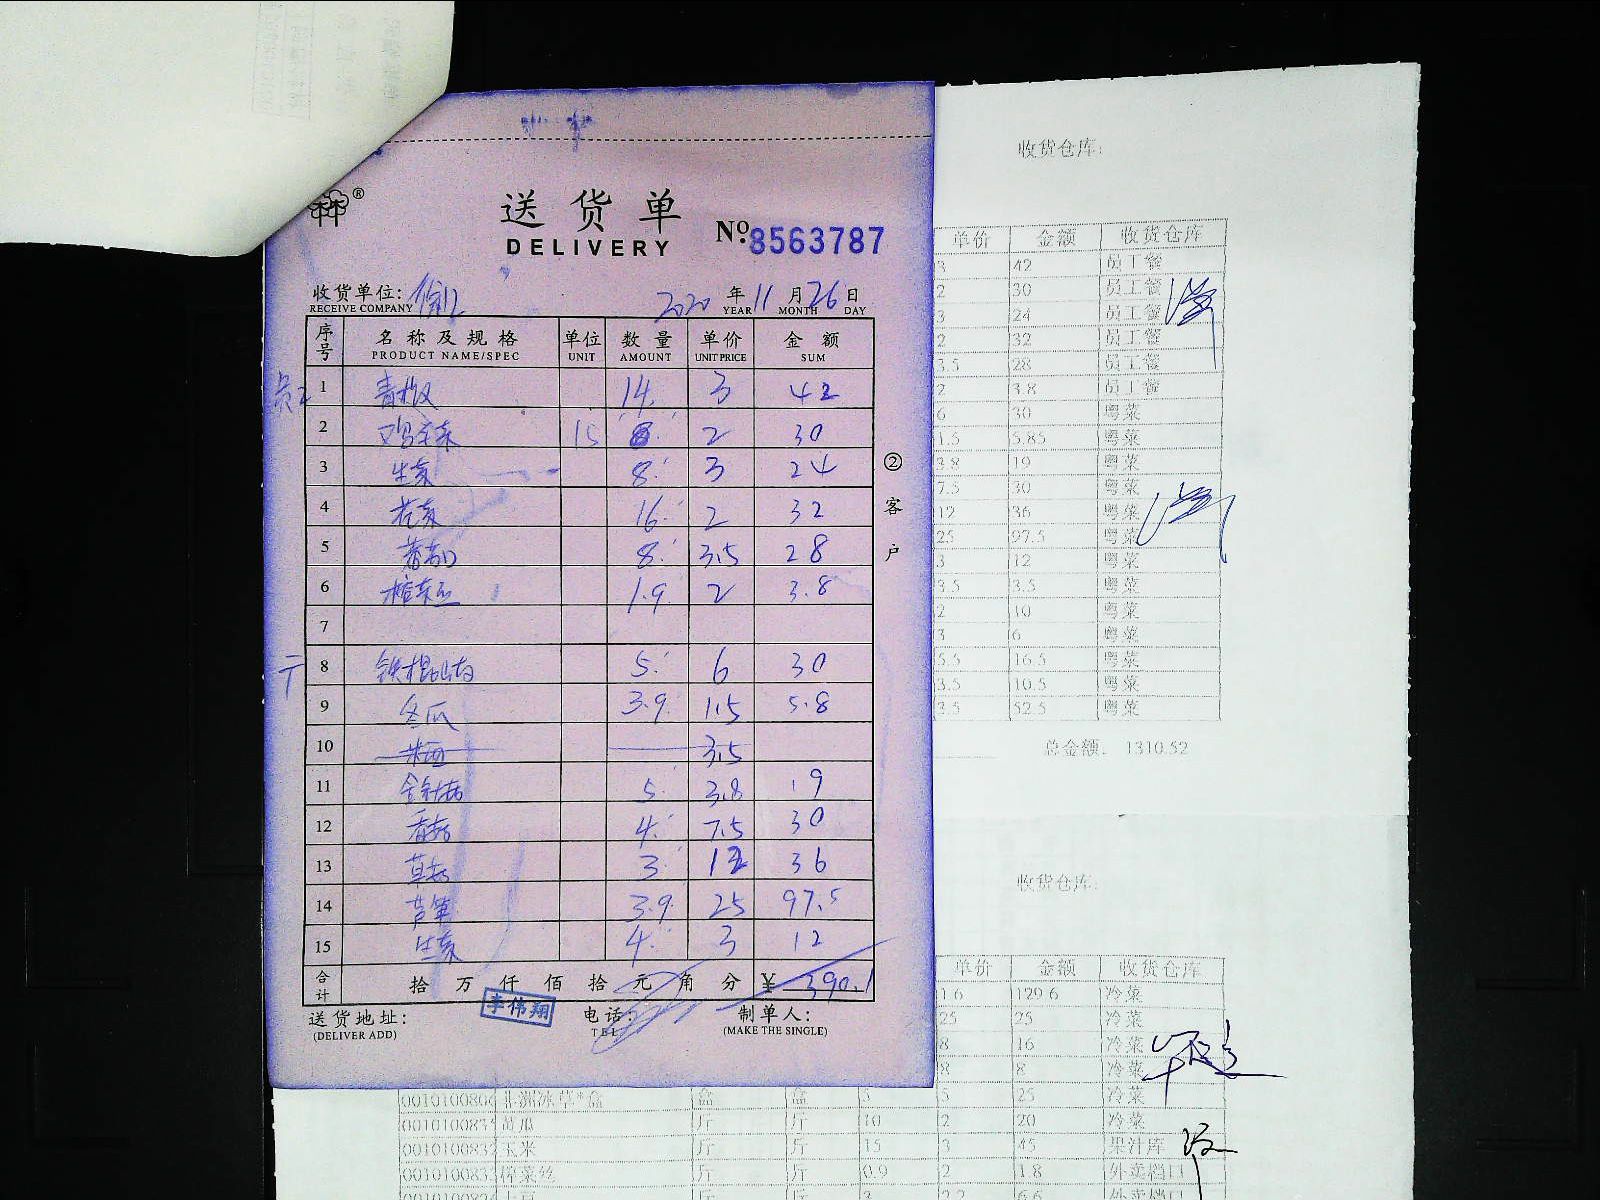 送货单
DELIVERY
No. 8563787
收货单位:
RECEIVE COMPANY
2020 年 11 月 26 日
YEAR MONTH DAY
序号 名称及规格 单位 数量 单价 金额
PRODUCT NAME/SPEC UNIT AMOUNT UNIT PRICE SUM
1 14 3 42
2 15 8 2 30
3 生菜 8 3 24
4 16 2 32
5 8 3.5 28
6 1.9 2 3.8
7
8 铁棍山药 5 6 30
9 冬瓜 3.9 1.5 5.8
10 3.5
11 金针菇 5 3.8 19
12 香菇 4 7.5 30
13 草菇 3 12 36
14 芦笋 3.9 25 97.5
15 生菜 4 3 12
合计 拾 万 仟 佰 拾 元 角 分 ¥ 390.1
李伟翔
送货地址:
(DELIVER ADD)
电话:
TEL
制单人:
(MAKE THE SINGLE)
②客户
收货仓库:
单价 金额 收货仓库
3 42 员工餐
2 30 员工餐
3 24 员工餐
2 32 员工餐
3.5 28 员工餐
2 3.8 员工餐
6 30 粤菜
1.5 5.85 粤菜
3.8 19 粤菜
7.5 30 粤菜
12 36 粤菜
25 97.5 粤菜
3 12 粤菜
3.5 3.5 粤菜
2 10 粤菜
3 6 粤菜
5.5 16.5 粤菜
3.5 10.5 粤菜
3.5 52.5 粤菜
总金额: 1310.52
收货仓库:
单价 金额 收货仓库
1.6 129.6 冷菜
25 25 冷菜
8 16 冷菜
8 8 冷菜
非洲冰草*盒 盒 盒 5 5 25 冷菜
黄瓜 斤 斤 10 2 20 冷菜
玉米 斤 斤 15 3 45 果汁库
榨菜丝 斤 斤 0.9 2 1.8 外卖档口
土豆 斤 斤 3 2.2 6.6 外卖档口